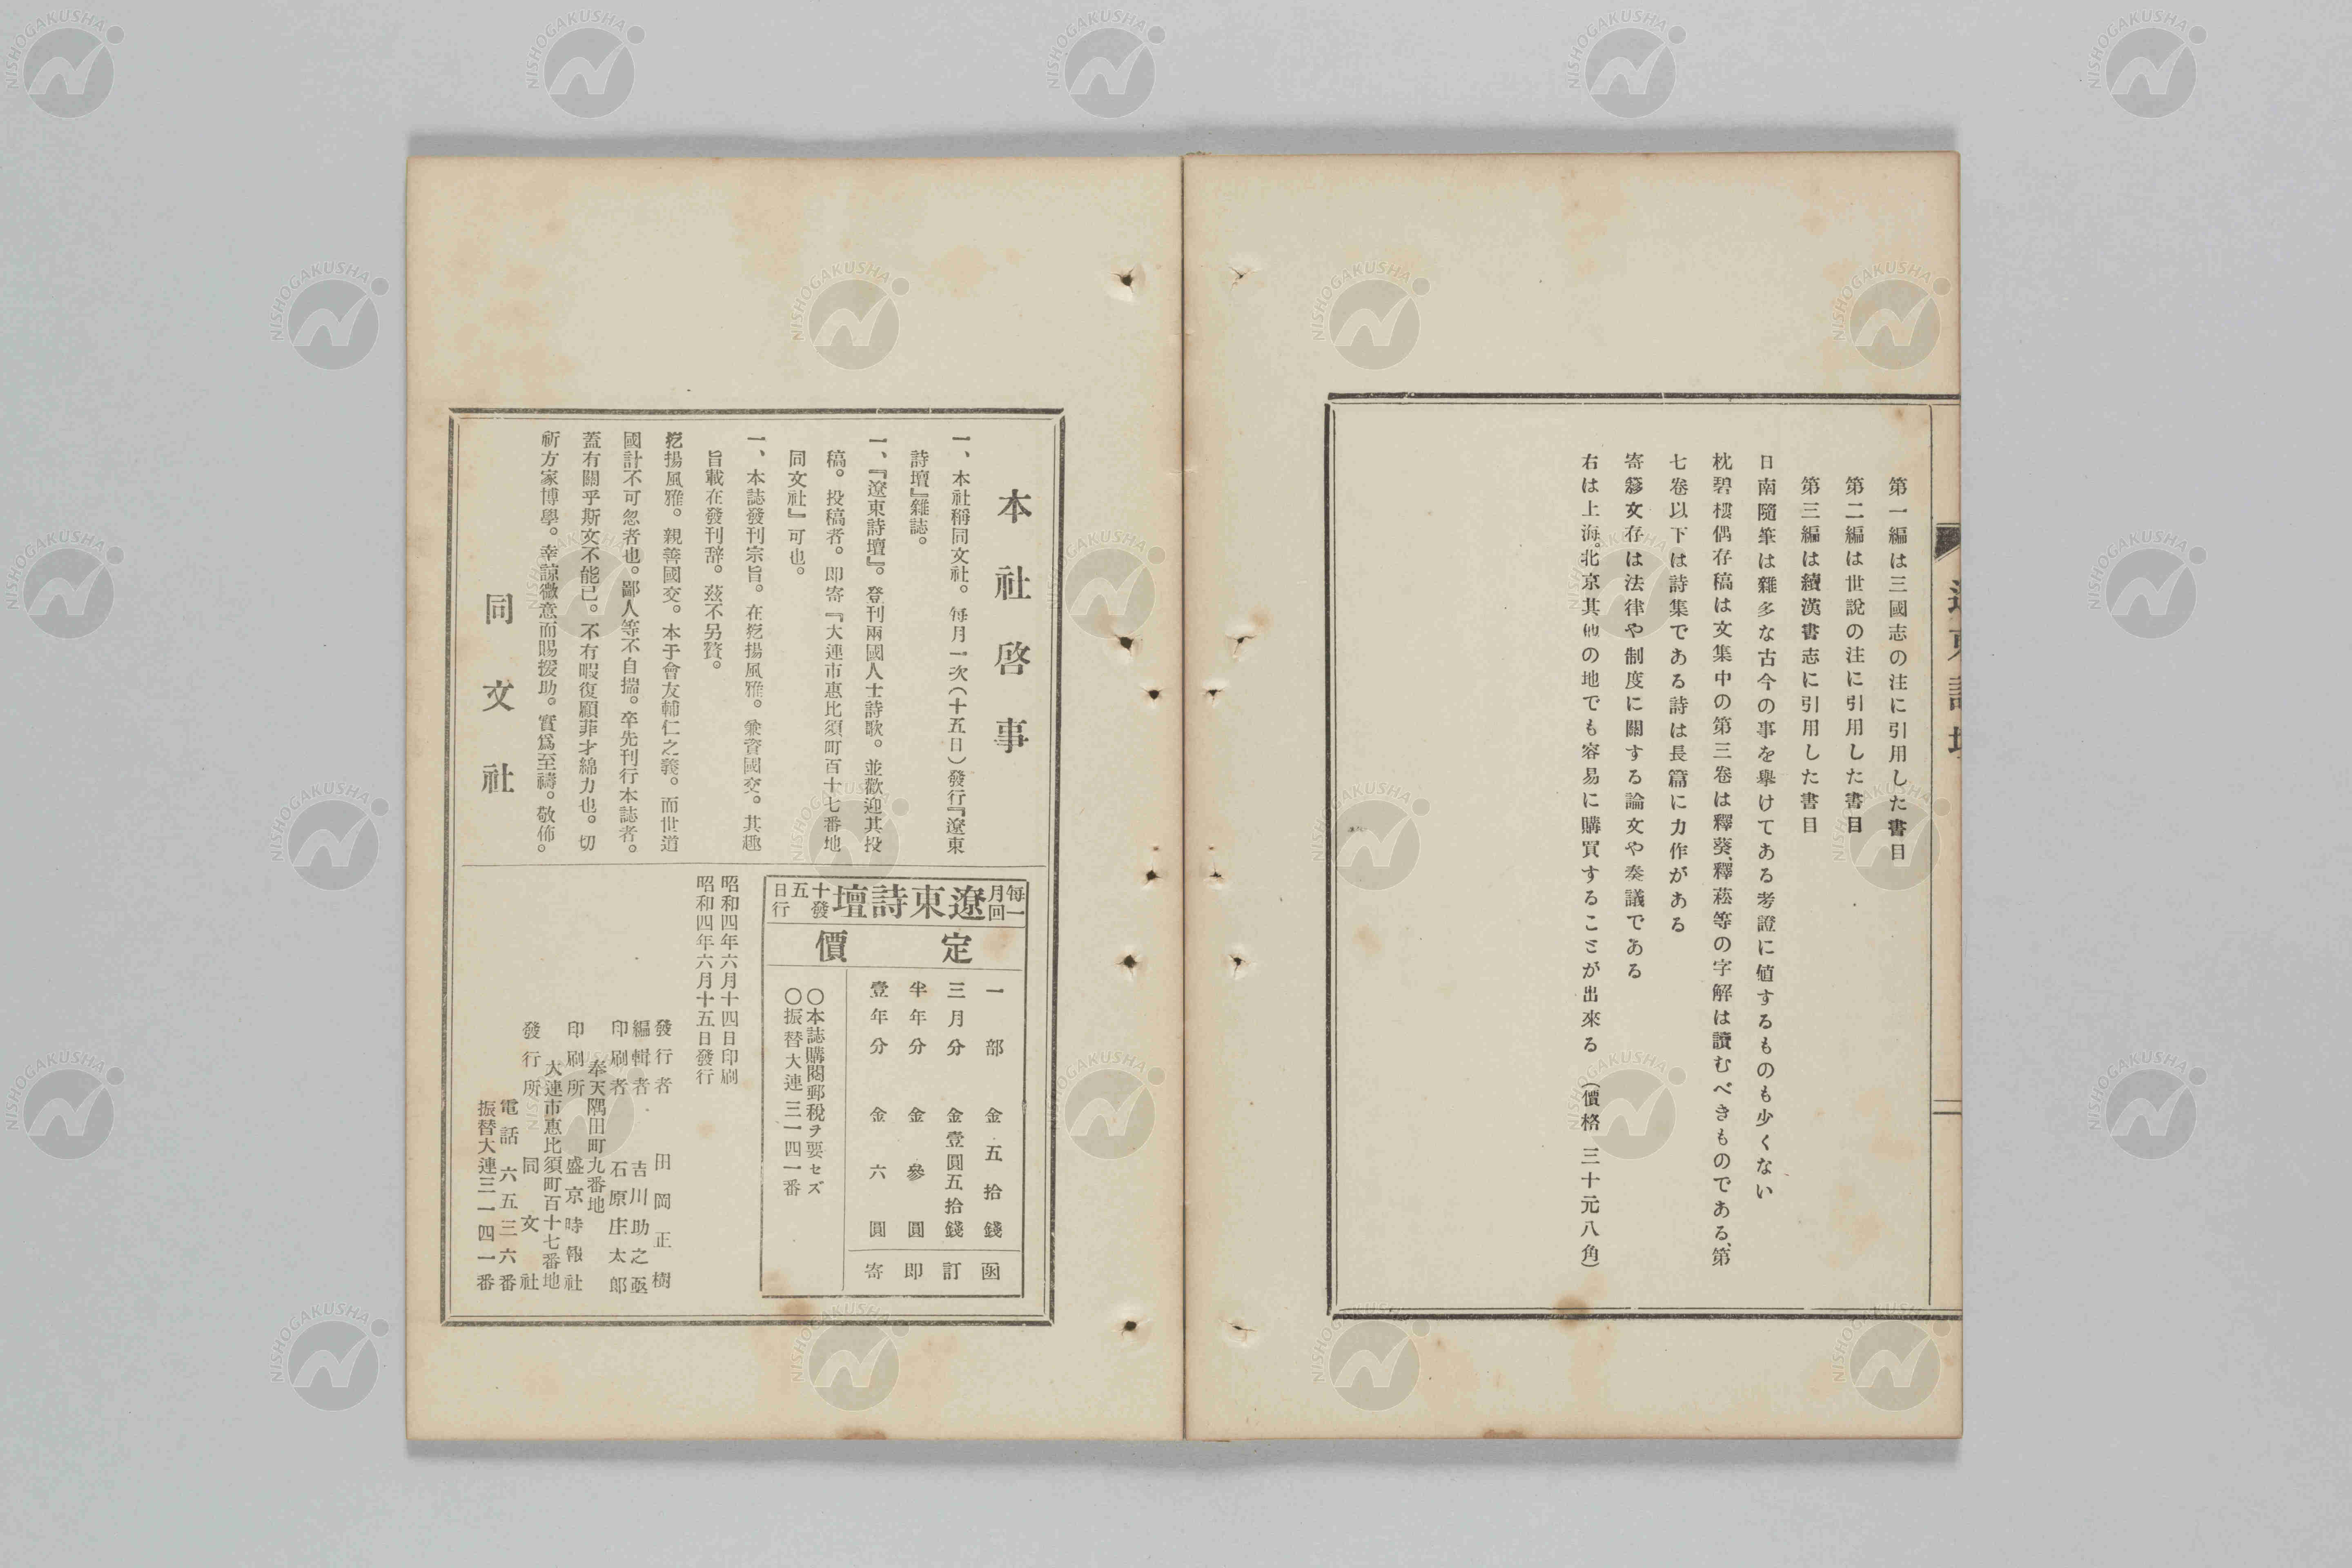 第一編は三國志の注に引用した書目
第二編は世說の注に引用した書目
第三編は續漢書志に引用した書目
日南隨筆は雜多な古今の事を擧けてある考證に値するものも少くない
枕碧樓偶存稿は文集中の第三卷は釋葵、釋菘等の字解は讀むべきものである、第
七卷以下は詩集である詩は長篇に力作がある
寄簃文存は法律や制度に關する論文や奏議である
右は上海。北京其他の地でも容易に購買することが出來る (價格 三十元八角)
本社啓事
一、本社稱同文社。每月一次(十五日)發行『遼東
詩壇』雜誌。
一、『遼東詩壇』。登刊兩國人士詩歌。並歡迎其投
稿。投稿者。卽寄『大連市惠比須町百十七番地
同文社』可也。
一、本誌發刊宗旨。在挖揚風雅。兼資國交。其趣
旨載在發刊辞。茲不另贅。
挖揚風雅。親善國交。本于會友輔仁之義。而世道
國計不可忽者也。鄙人等不自揣。卒先刊行本誌者。
蓋有關乎斯文不能已。不有暇復顧菲才綿力也。切
祈方家博學。幸諒微意而賜援助。實爲至禱。敬佈。
同文社
每月一回 遼東詩壇 十五日發行
定價
一部 金五拾錢
三月分 金壹圓五拾錢
半年分 金參圓
壹年分 金六圓
函訂卽寄
〇本誌購閱郵稅ヲ要セズ
〇振替大連三一四一番
昭和四年六月十四日印刷
昭和四年六月十五日發行
發行者 田岡正樹
編輯者 吉川助之亟
印刷者 石原庄太郎
奉天隅田町九番地
印刷所 盛京時報社
大連市惠比須町百十七番地
發行所 同文社
電話六五三六番
振替大連三一四一番
NISHOGAKUSHA